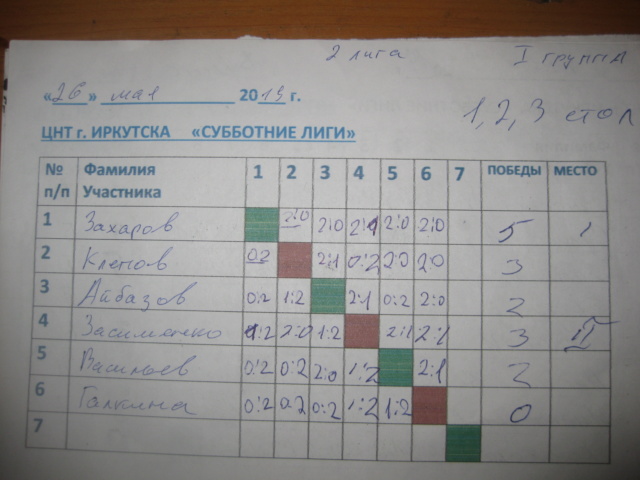 2 лига I группа
«26» мая 2013 г.
1, 2, 3 стол
ЦНТ г. ИРКУТСКА «СУББОТНИЕ ЛИГИ»
№ п/п Фамилия Участника 1 2 3 4 5 6 7 ПОБЕДЫ МЕСТО
1 Захаров 2:0 2:0 2:1 2:0 2:0 5 1
2 Клепов 0:2 2:1 0:2 2:0 2:0 3
3 Айбазов 0:2 1:2 2:1 0:2 2:0 2
4 Засименко 1:2 2:0 1:2 2:1 2:1 3 II
5 Васильев 0:2 0:2 2:0 1:2 2:1 2
6 Галкина 0:2 0:2 0:2 1:2 1:2 0
7